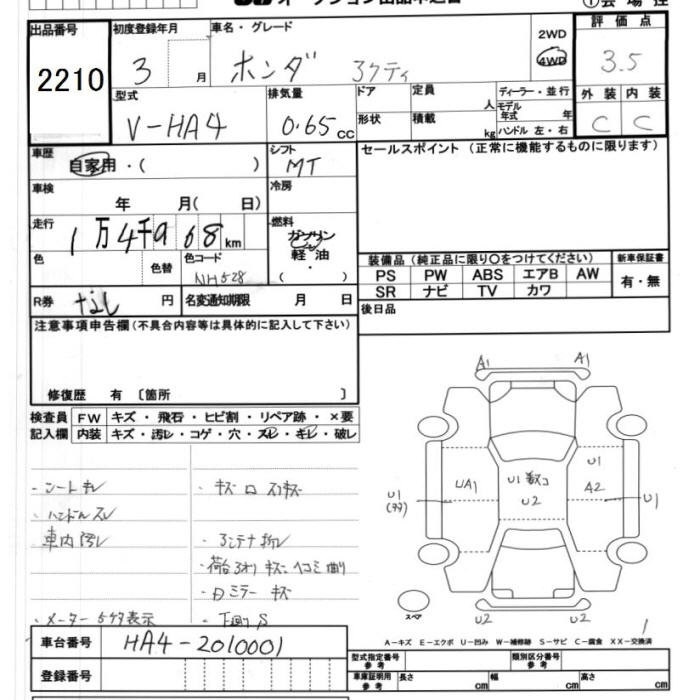 出品番号
2210
初度登録年月
3 月
車名・グレード
ホンダ アクティ
2WD
4WD
評価点
3.5
型式
V-HA4
排気量
0.65 cc
ドア
形状
定員
人
積載
kg
ディーラー・並行
モデル
年式 年
ハンドル 左・右
外装 内装
C C
車歴
自家用・( )
シフト
MT
セールスポイント (正常に機能するものに限ります)
車検
年 月( 日)
冷房
走行
1万4千968km
燃料
ガソリン
軽油
・
( )
色
色替
色コード
NH528
装備品 (純正品に限り〇をつけてください)
新車保証書
PS PW ABS エアB AW
SR ナビ TV カワ
有・無
R券 なし 円
名変通知期限 月 日
後日品
注意事項申告欄 (不具合内容等は具体的に記入して下さい)
修復歴 有 〔箇所 〕
検査員
記入欄
FW キズ・飛石・ヒビ割・リペア跡・×要
内装 キズ・汚レ・コゲ・穴・スレ・キレ・破レ
・シートキレ
・ハンドルスレ
・車内汚レ
・メーター5ケタ表示
・アンテナ折レ
・下回りS
A1 A1
UA1
U1
U2
U1
A2
U1
U1
スペア
U2 U2
A-キズ E-エクボ U-凹み W-補修跡 S-サビ C-腐食 XX-交換済
車台番号
HA4-2010001
登録番号
型式指定番号
参考
類別区分番号
参考
車庫証明用
参考
長さ cm 幅 cm 高さ cm